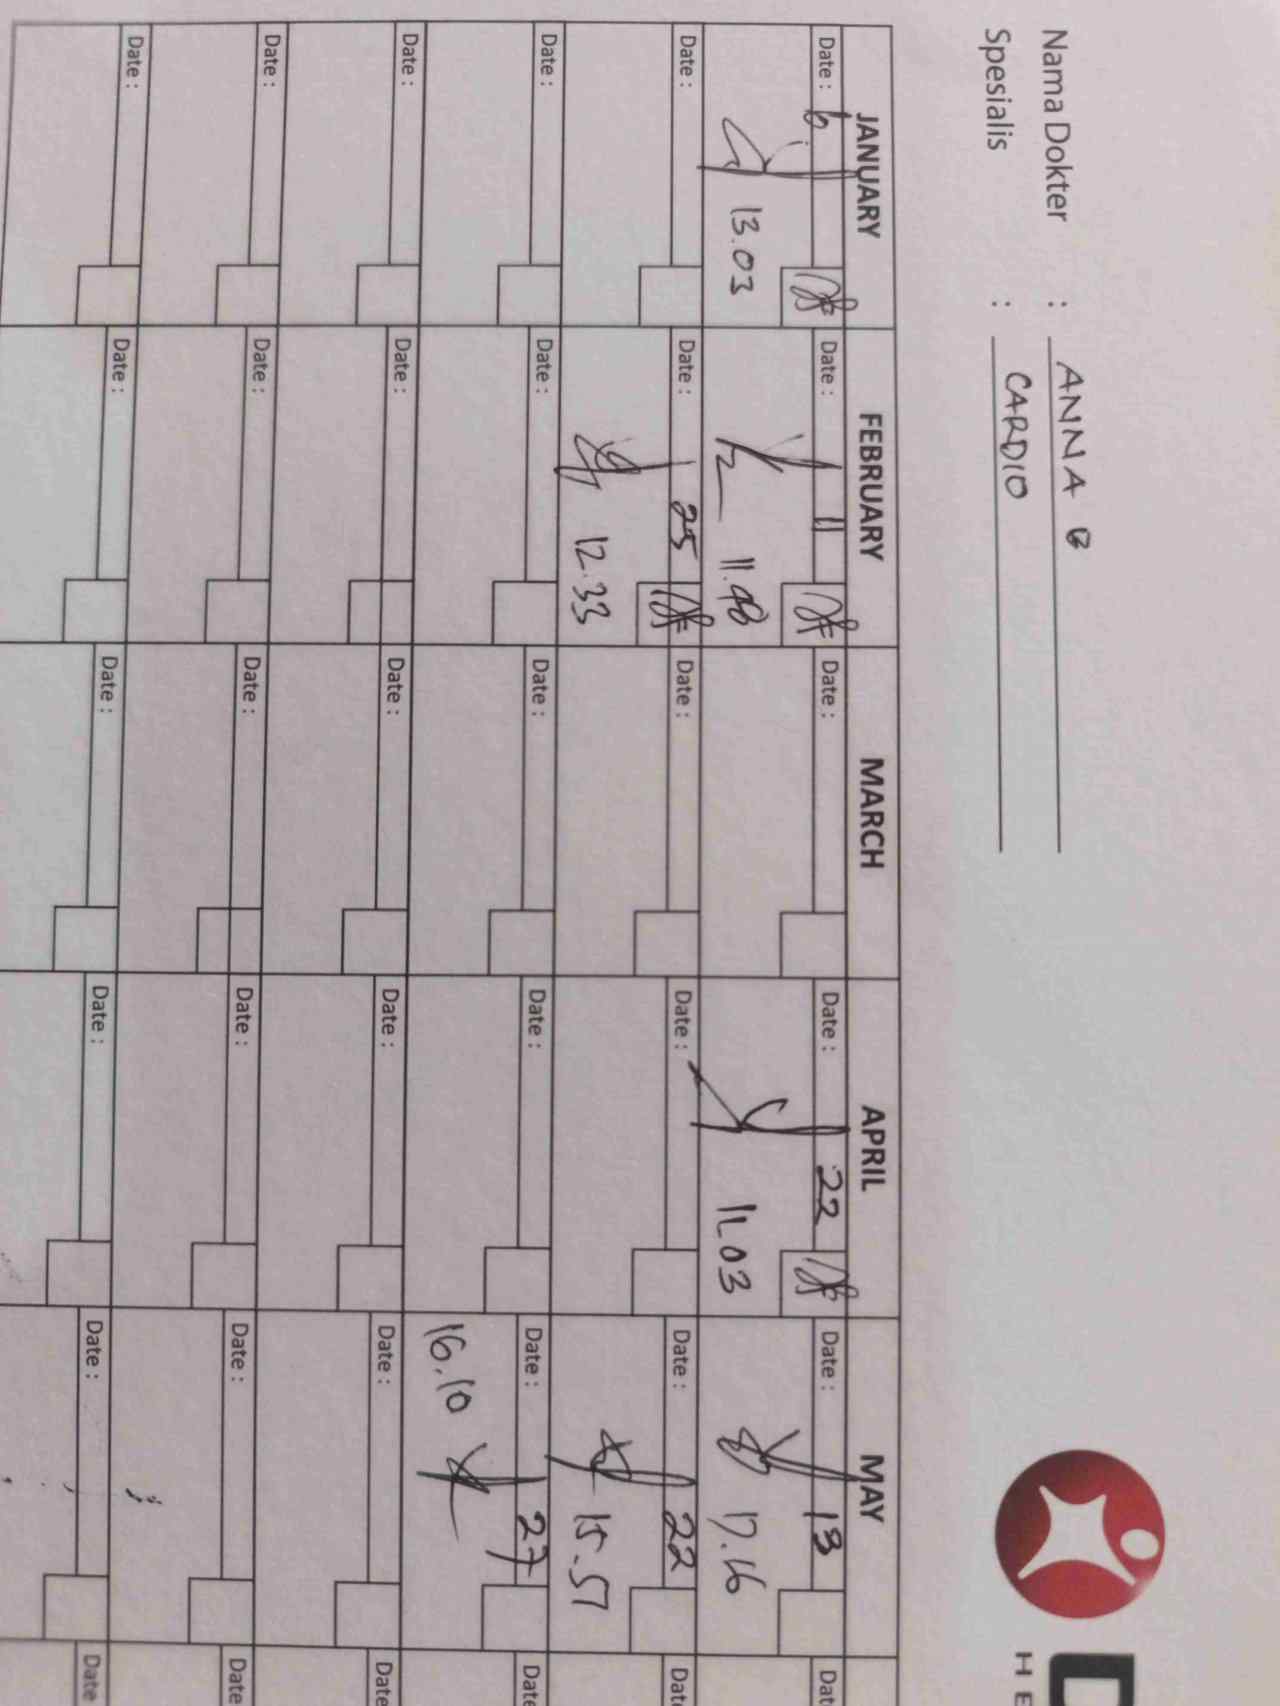 Nama Dokter : ANNA B
Spesialis : CARDIO
H E
JANUARY FEBRUARY MARCH APRIL MAY
Date : 6 Date : 11 Date : Date : 22 Date : 13 Dat
13.03 11.48 11.03 17.16
Date : Date : 25 Date : Date : Date : 22 Dat
12.33 15.57
Date : Date : Date : Date : Date : 27 Dat
16.10
Date : Date : Date : Date : Date : Date
Date : Date : Date : Date : Date : Date
Date : Date : Date : Date : Date : Date